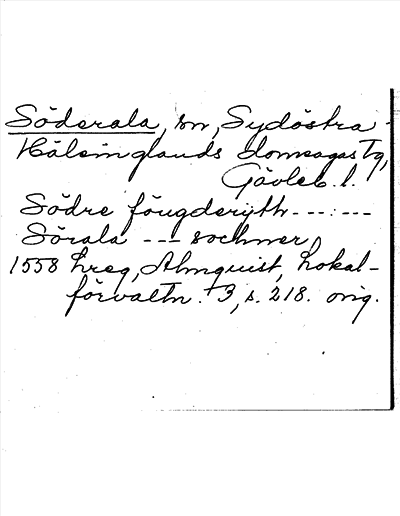 Söderala, sn, Sydöstra
Hälsinglands domsagas tg,
Gävleb. l.
Södre föugderijth ---:---
Sörala --- sochner,
1558 hreg, Almquist, Lokal-
förvaltn. 3, s. 218. orig.